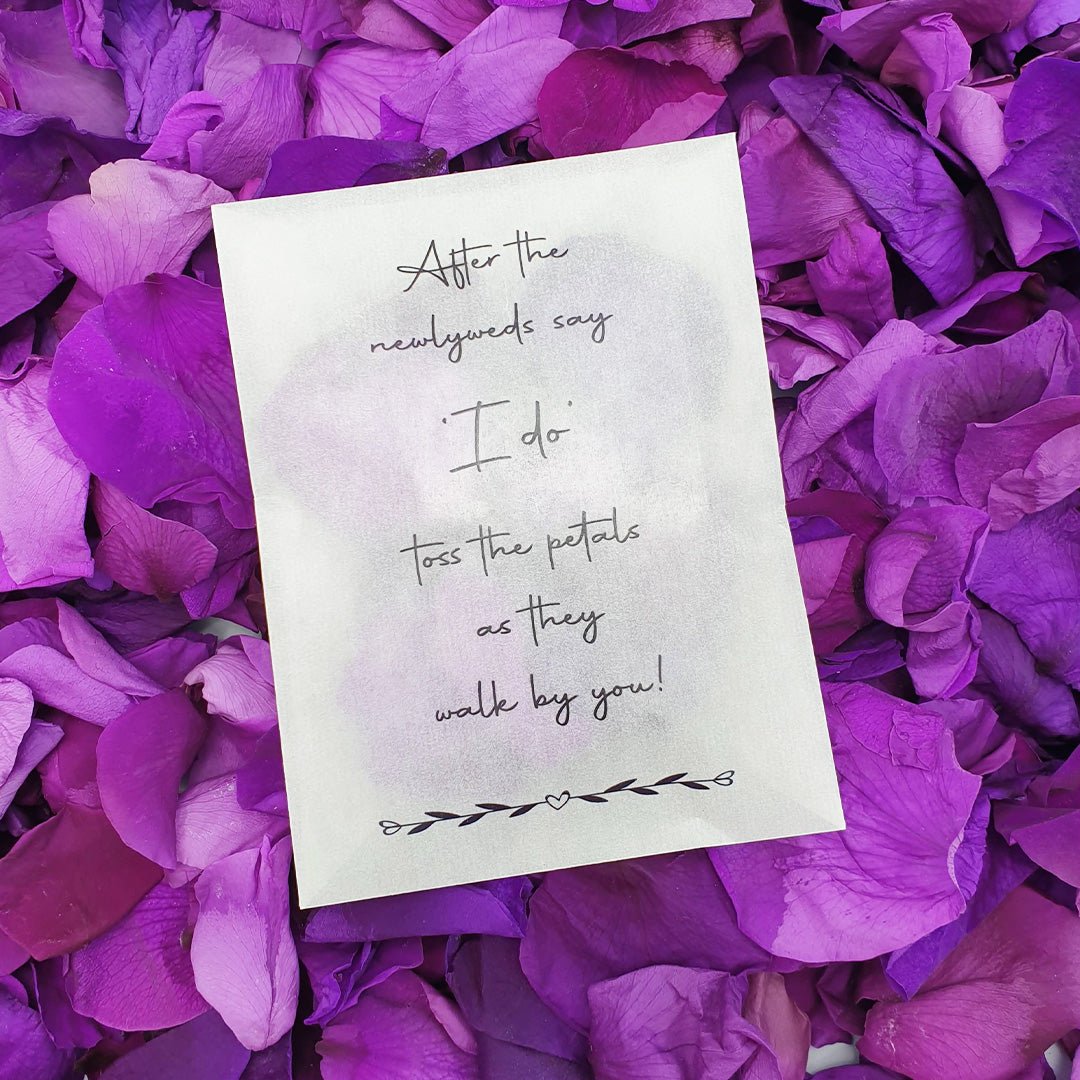 After the
newlyweds say
'I do'
toss the petals
as they
walk by you!